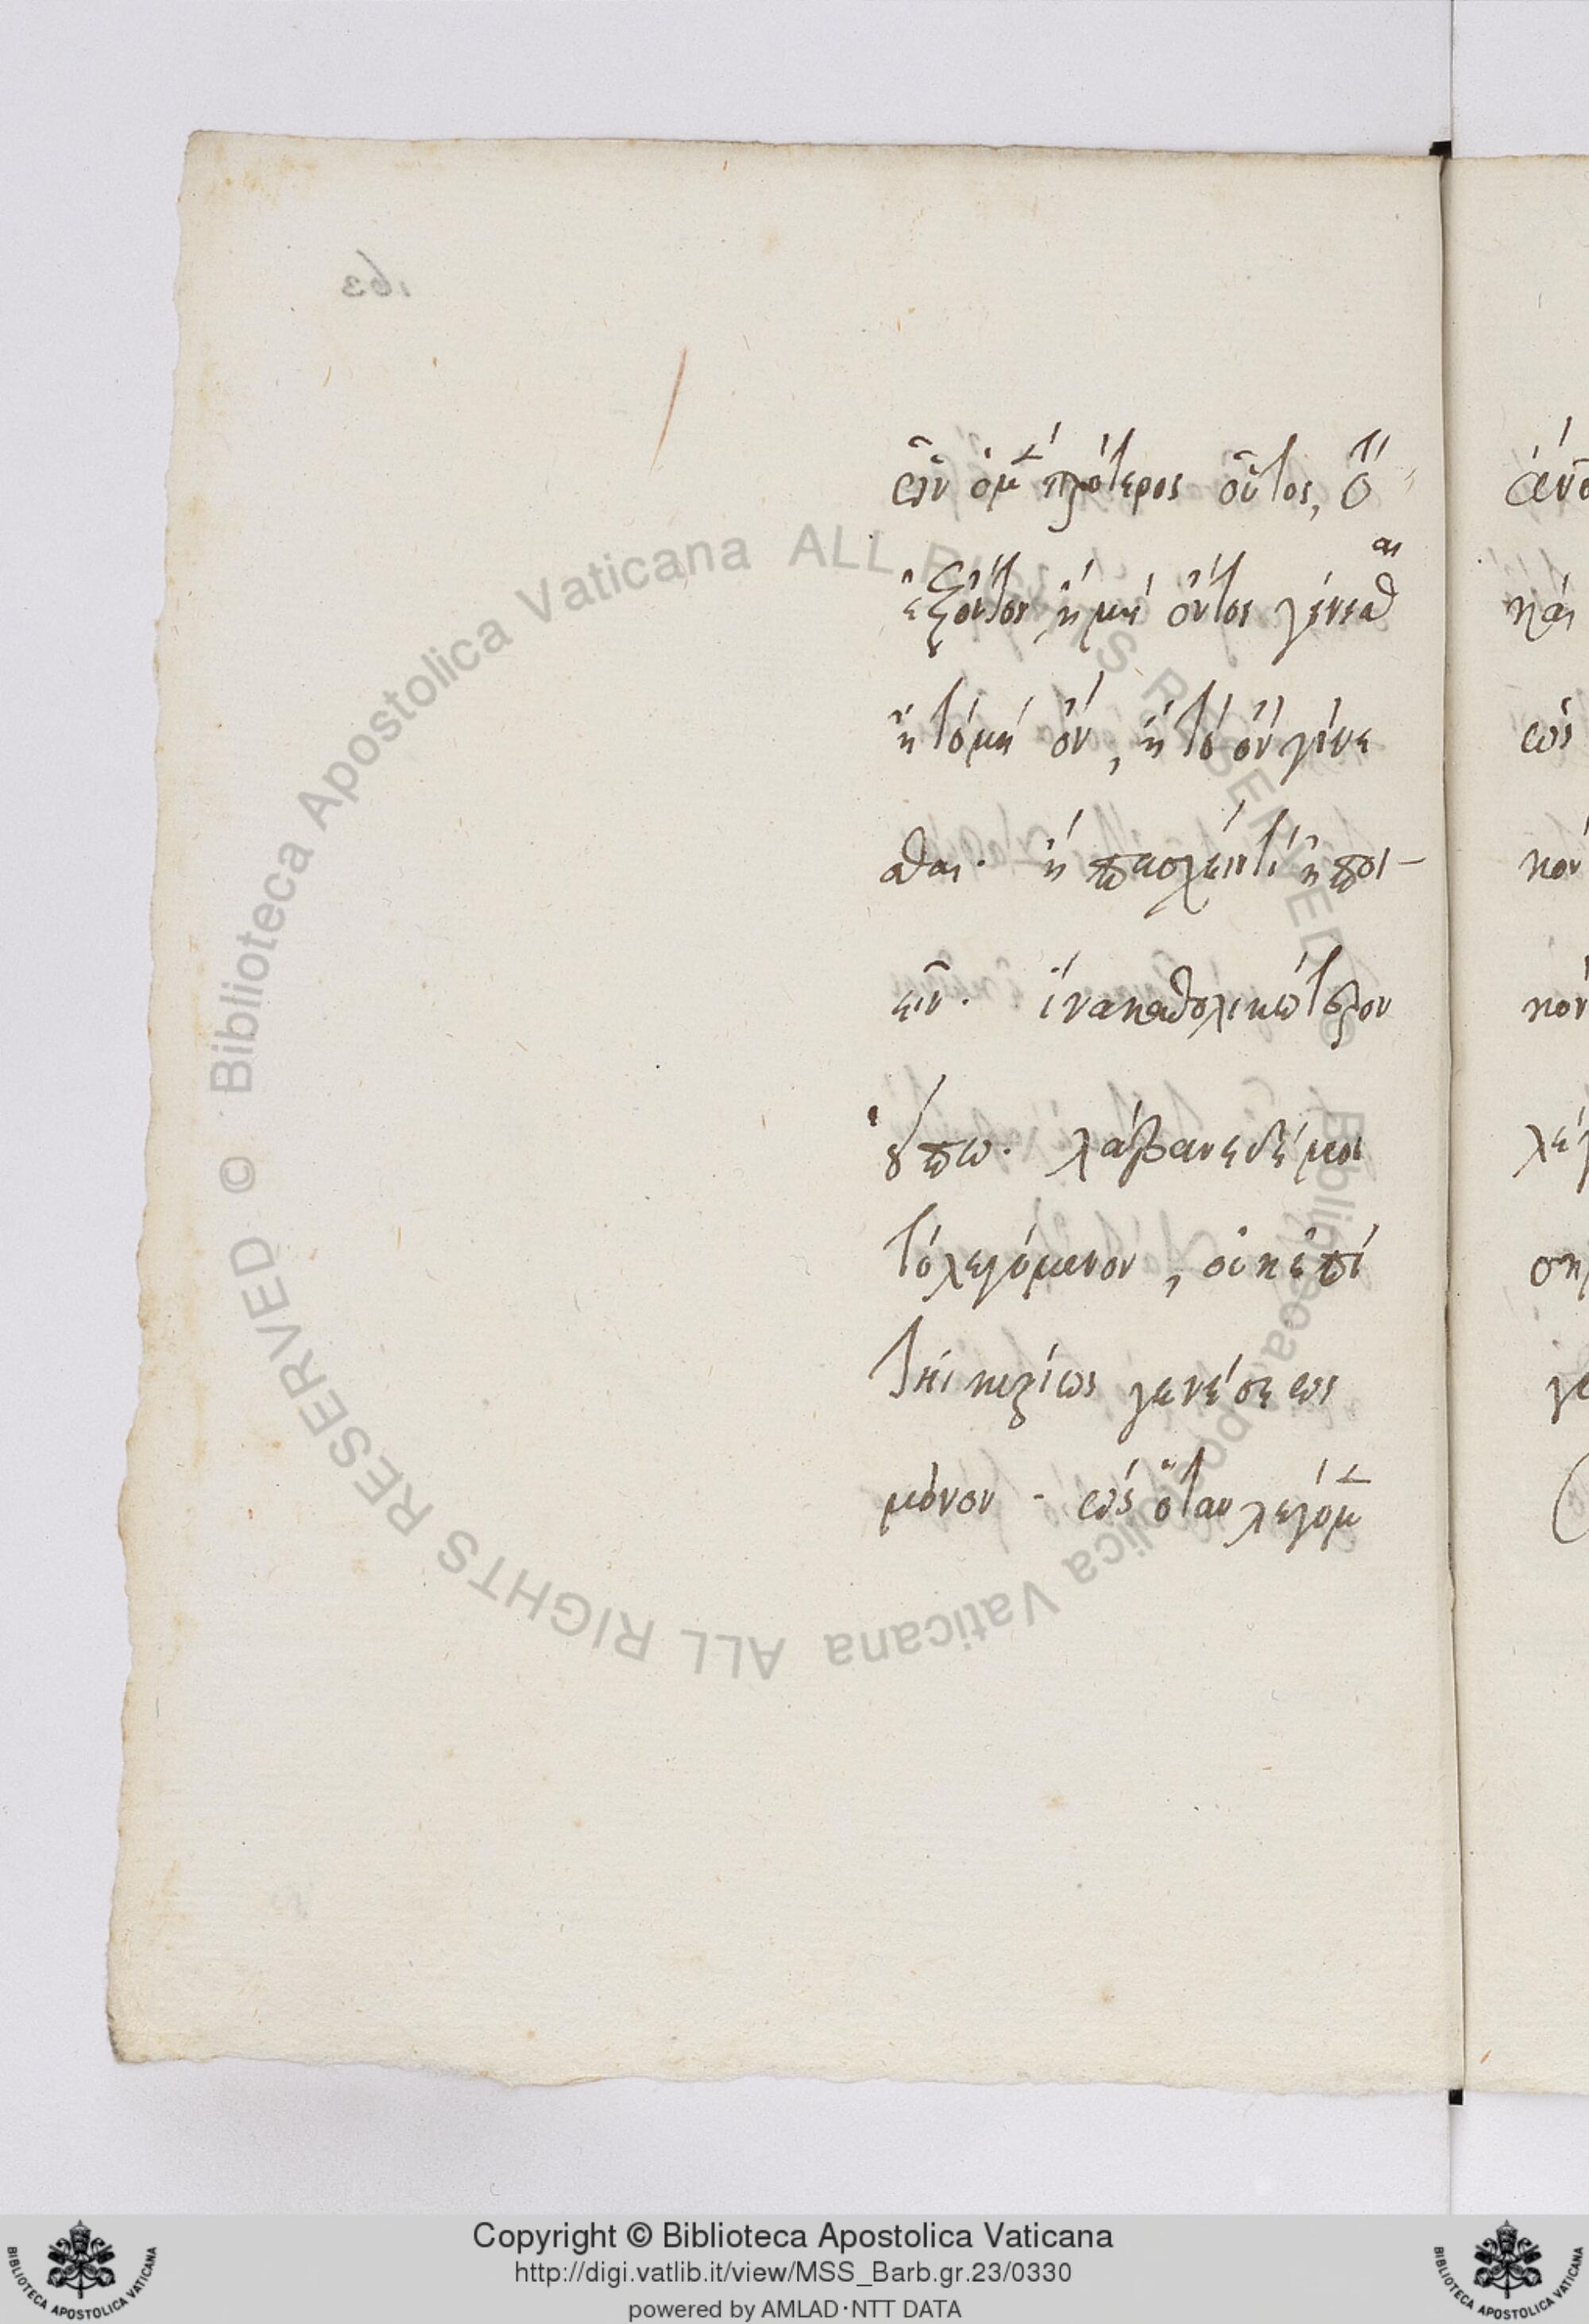 εῖν ὁμ πλότερος οὗτος, ὅτι
ἐξ ὄντος ἢ μὴ ὄντος γίνεσθαι
ἢ τὸ μὴ ὄν, ἢ τὸ ὂν γίνε
σθαι. ἢ πάσχειν τι ἢ ποι-
εῖν. ἵνα καθολικώτερον
εἴπω. λάβανε δέ μοι
τὸ λεγόμενον, οὐκ ἐπὶ
τῆς κυρίως γενέσεως
μόνον - ὡς ὅταν λέγομ
163
Copyright © Biblioteca Apostolica Vaticana
http://digi.vatlib.it/view/MSS_Barb.gr.23/0330
powered by AMLAD·NTT DATA
© Biblioteca Apostolica Vaticana ALL RIGHTS RESERVED
© Biblioteca Apostolica Vaticana ALL RIGHTS RESERVED
BIBLIOTECA APOSTOLICA VATICANA
BIBLIOTECA APOSTOLICA VATICANA